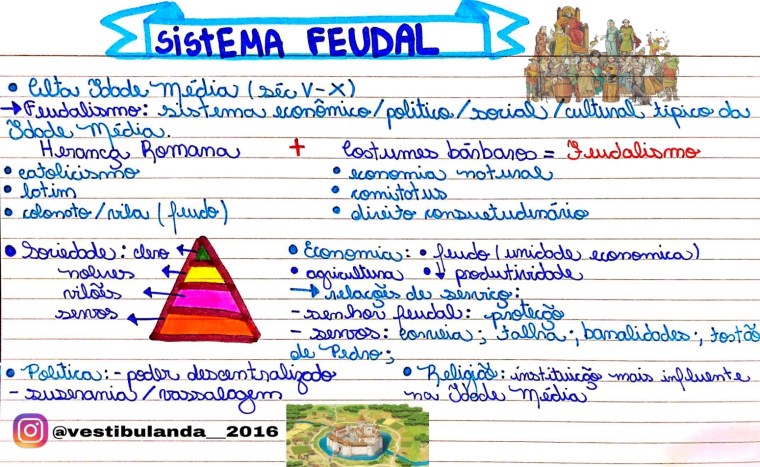 SISTEMA FEUDAL
• Alta Idade Média (séc V-X)
→ Feudalismo: sistema econômico/político/social/cultural típico da
Idade Média.
Herança Romana + Costumes bárbaros = Feudalismo
• catolicismo
• latim
• colonato/vila (feudo)
• economia natural
• comitatus
• direito consuetudinário
• Sociedade: clero
nobres
vilões
servos
• Economia: • feudo (unidade economica)
• agricultura • ↓ produtividade
→ relações de serviço:
- senhor feudal: proteção
- servos: corveia; talha; banalidades; tostão
de Pedro;
• Política: - poder descentralizado
- suserania/vassalagem
• Religião: instituição mais influente
na Idade Média
@vestibulanda__2016